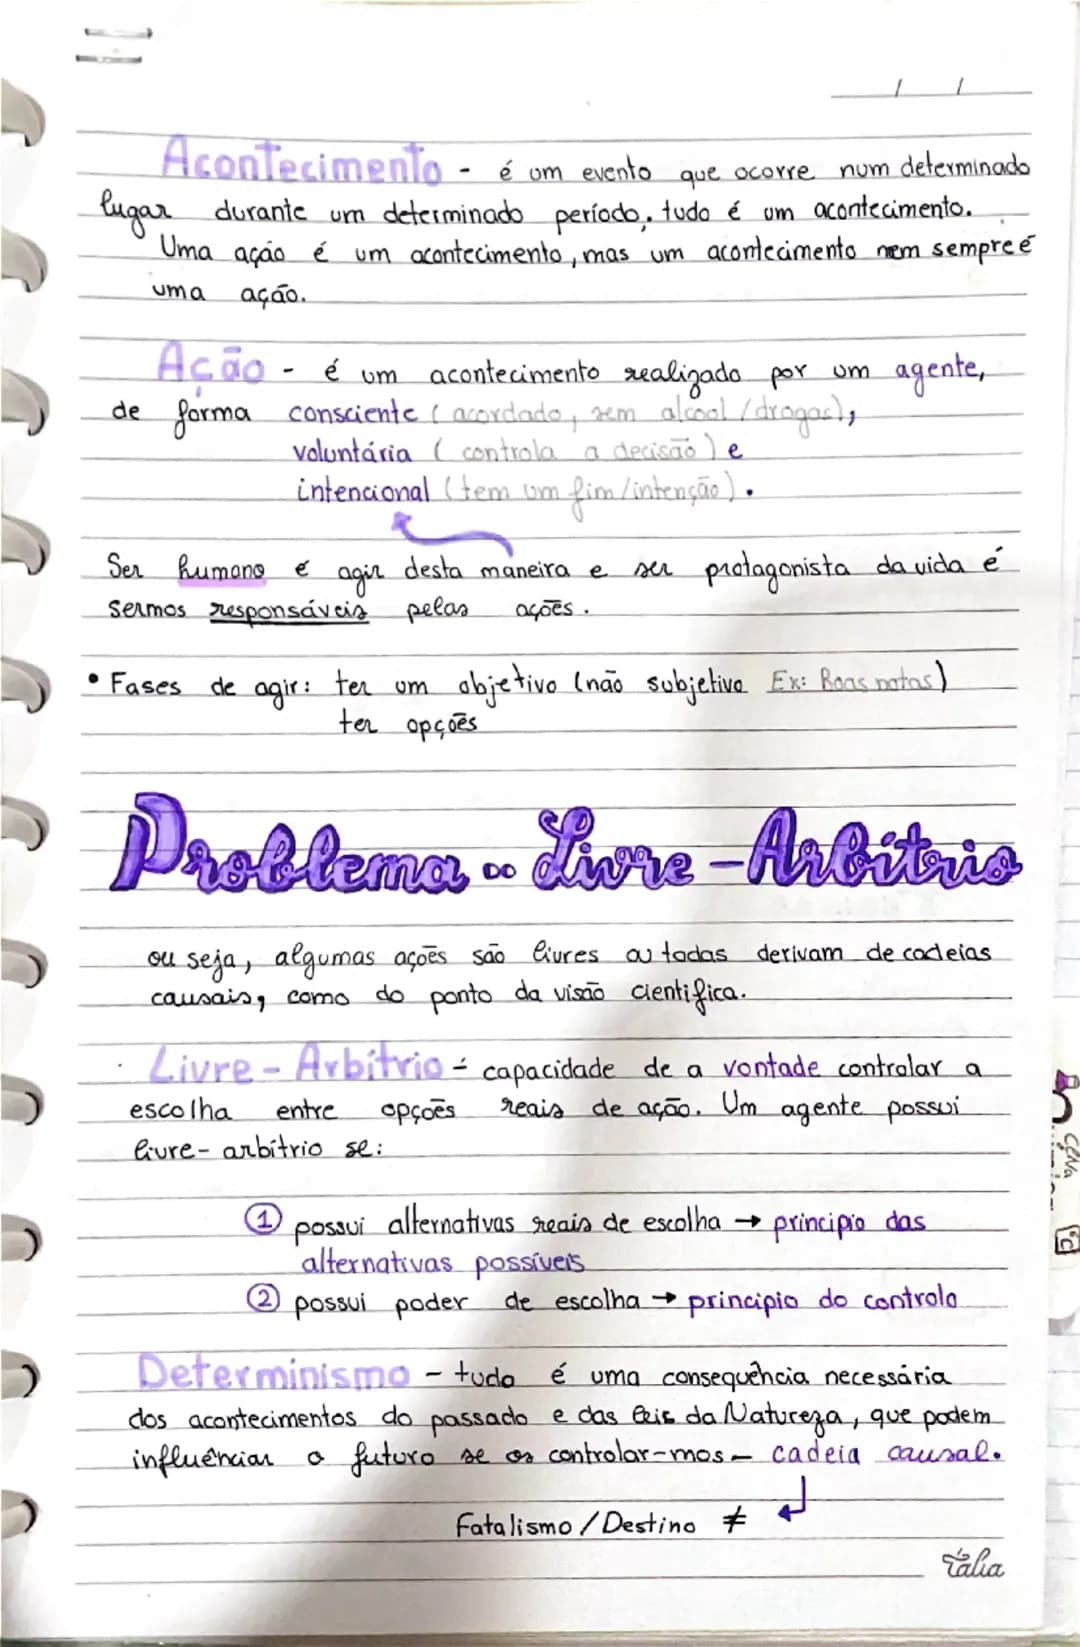 / /
Acontecimento - é um evento que ocorre num determinado
lugar durante um determinado período, tudo é um acontecimento.
Uma ação é um acontecimento, mas um acontecimento nem sempre é
uma ação.
Ação - é um acontecimento realizado por um agente,
de forma consciente (acordado, sem alcool/drogas),
voluntária (controla a decisão) e
intencional (tem um fim/intenção).
Ser humano é agir desta maneira e ser protagonista da vida é
sermos responsáveis pelas ações.
• Fases de agir: ter um objetivo (não subjetivo Ex: Boas notas)
ter opções
Problema do Livre-Arbítrio
ou seja, algumas ações são livres ou todas derivam de cadeias
causais, como do ponto da visão cientifica.
Livre-Arbítrio - capacidade de a vontade controlar a
escolha entre opções reais de ação. Um agente possui
livre-arbítrio se:
① possui alternativas reais de escolha → principio das
alternativas possíveis
② possui poder de escolha → principio do controlo
Determinismo - tudo é uma consequência necessária
dos acontecimentos do passado e das leis da Natureza, que podem
influênciar o futuro se os controlar-mos - cadeia causal.
Fatalismo/Destino ≠
Tália